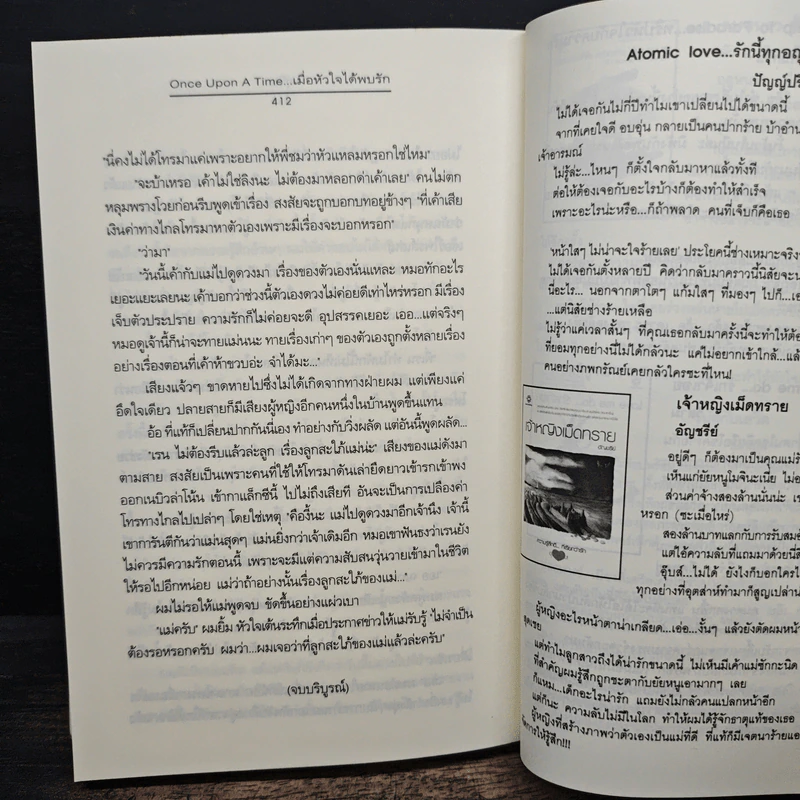 Once Upon A Time...เมื่อหัวใจได้พบรัก
412
"นี่คงไม่ได้โทรมาแค่เพราะอยากให้พี่ชมว่าหัวแหลมหรอกใช่ไหม"
"จะบ้าเหรอ เค้าไม่ใช่ลิงนะ ไม่ต้องมาหลอกด่าเค้าเลย" คนไม่ตก
หลุมพรางโวยก่อนรีบพูดเข้าเรื่อง สงสัยจะถูกบอกบทอยู่ข้างๆ "ที่เค้าเสีย
เงินค่าทางไกลโทรมาหาตัวเองเพราะมีเรื่องจะบอกหรอก"
"ว่ามา"
"วันนี้เค้ากับแม่ไปดูดวงมา เรื่องของตัวเองนั่นแหละ หมอทักอะไร
เยอะแยะเลยนะ เค้าบอกว่าช่วงนี้ตัวเองดวงไม่ค่อยดีเท่าไหร่หรอก มีเรื่อง
เจ็บตัวประปราย ความรักก็ไม่ค่อยจะดี อุปสรรคเยอะ เออ...แต่จริงๆ
หมอดูเจ้านี้ก็น่าจะทายแม่นนะ ทายเรื่องเก่าๆ ของตัวเองถูกตั้งหลายเรื่อง
อย่างเรื่องตอนที่เค้าห้าขวบอ่ะ จำได้มะ..."
เสียงแจ้วๆ ขาดหายไปซึ่งไม่ได้เกิดจากทางฝ่ายผม แต่เพียงแค่
อึดใจเดียว ปลายสายก็มีเสียงผู้หญิงอีกคนหนึ่งในบ้านพูดขึ้นแทน
อ้อ ที่แท้ก็เปลี่ยนปากกันนี่เอง ทำอย่างกับวิ่งผลัด แต่อันนี้พูดผลัด...
"เรน ไม่ต้องรีบแล้วล่ะลูก เรื่องลูกสะใภ้แม่น่ะ" เสียงของแม่ดังมา
ตามสาย สงสัยเป็นเพราะคนที่ใช้ให้โทรมาดันเล่ายืดยาวเข้ารกเข้าพง
ออกเนบิวล่าโน้น เข้ากาแล็กซีนี้ ไปไม่ถึงเสียที อันจะเป็นการเปลืองค่า
โทรทางไกลไปเปล่าๆ โดยใช่เหตุ "คืองี้นะ แม่ไปดูดวงมาอีกเจ้านึง เจ้านี้
เขาการันตีกันว่าแม่นสุดๆ แม่นยิ่งกว่าเจ้าเดิมอีก หมอเขาฟันธงว่าเรนยัง
ไม่ควรมีความรักตอนนี้ เพราะจะมีแต่ความสับสนวุ่นวายเข้ามาในชีวิต
ให้รอไปอีกหน่อย แม่ว่าถ้าอย่างนั้นเรื่องลูกสะใภ้ของแม่..."
ผมไม่รอให้แม่พูดจบ ขัดขึ้นอย่างแผ่วเบา
"แม่ครับ" ผมยิ้ม หัวใจเต้นระทึกเมื่อประกาศข่าวให้แม่รับรู้ "ไม่จำเป็น
ต้องรอหรอกครับ ผมว่า...ผมเจอว่าที่ลูกสะใภ้ของแม่แล้วล่ะครับ"
(จบบริบูรณ์)
Atomic love...รักนี้ทุกอณู
ปัญญ์ปรี
ไม่ได้เจอกันไม่กี่ปีทำไมเขาเปลี่ยนไปได้ขนาดนี้
จากที่เคยใจดี อบอุ่น กลายเป็นคนปากร้าย บ้าอำน
เจ้าอารมณ์
ไม่รู้ล่ะ...ไหนๆ ก็ตั้งใจกลับมาหาแล้วทั้งที
ต่อให้ต้องเจอกับอะไรบ้างก็ต้องทำให้สำเร็จ
เพราะอะไรน่ะหรือ...ก็ถ้าพลาด คนที่เจ็บก็คือเธอ
'หน้าใสๆ ไม่น่าจะใจร้ายเลย' ประโยคนี้ช่างเหมาะจริงๆ
ไม่ได้เจอกันตั้งหลายปี คิดว่ากลับมาคราวนี้นิสัยจะน
นี่อะไร... นอกจากตาโตๆ แก้มใสๆ ที่มองๆ ไปก็...เอ
...แต่นิสัยช่างร้ายเหลือ
ไม่รู้ว่าแค่เวลาสั้นๆ ที่คุณเธอกลับมาครั้งนี้จะทำให้ต้อ
ที่ยอมทุกอย่างนี่ไม่ได้กลัวนะ แค่ไม่อยากเข้าใกล้...แล้
คนอย่างภพกรัณย์เคยกลัวใครซะที่ไหน!
เจ้าหญิงเม็ดทราย
อัญชรีย์
เจ้าหญิงเม็ดทราย
อยู่ดีๆ ก็ต้องมาเป็นคุณแม่รั
เห็นแก่ยัยหนูโมจินะเนี่ย ไม่อ
ส่วนค่าจ้างสองล้านนั่นน่ะ เช
หรอก (ซะเมื่อไหร่)
สองล้านบาทแลกกับการรับสมอ้
แต่ใช้ความลับที่แถมมาด้วยนี่สิ
อุ๊บส์...ไม่ได้ ยังไงก็บอกใครไ
ทุกอย่างที่อุตส่าห์ทำมาก็สูญเปล่าน
ผู้หญิงอะไรหน้าตาน่าเกลียด...เอ่อ...งั้นๆ แล้วยังตัดผมหน้า
สุดเชย
แต่ทำไมลูกสาวถึงได้น่ารักขนาดนี้ ไม่เห็นมีเค้าแม่ซักกะนิด
ที่สำคัญผมรู้สึกถูกชะตากับยัยหนูเอามากๆ เลย
ก็แหม...เด็กอะไรน่ารัก แถมยังไม่กลัวคนแปลกหน้าอีก
แต่ก็นะ ความลับไม่มีในโลก ทำให้ผมได้รู้จักธาตุแท้ของเธอ
ผู้หญิงที่สร้างภาพว่าตัวเองเป็นแม่ที่ดี ที่แท้ก็มีเจตนาร้ายแอ
จัดการให้รู้สึก!!!